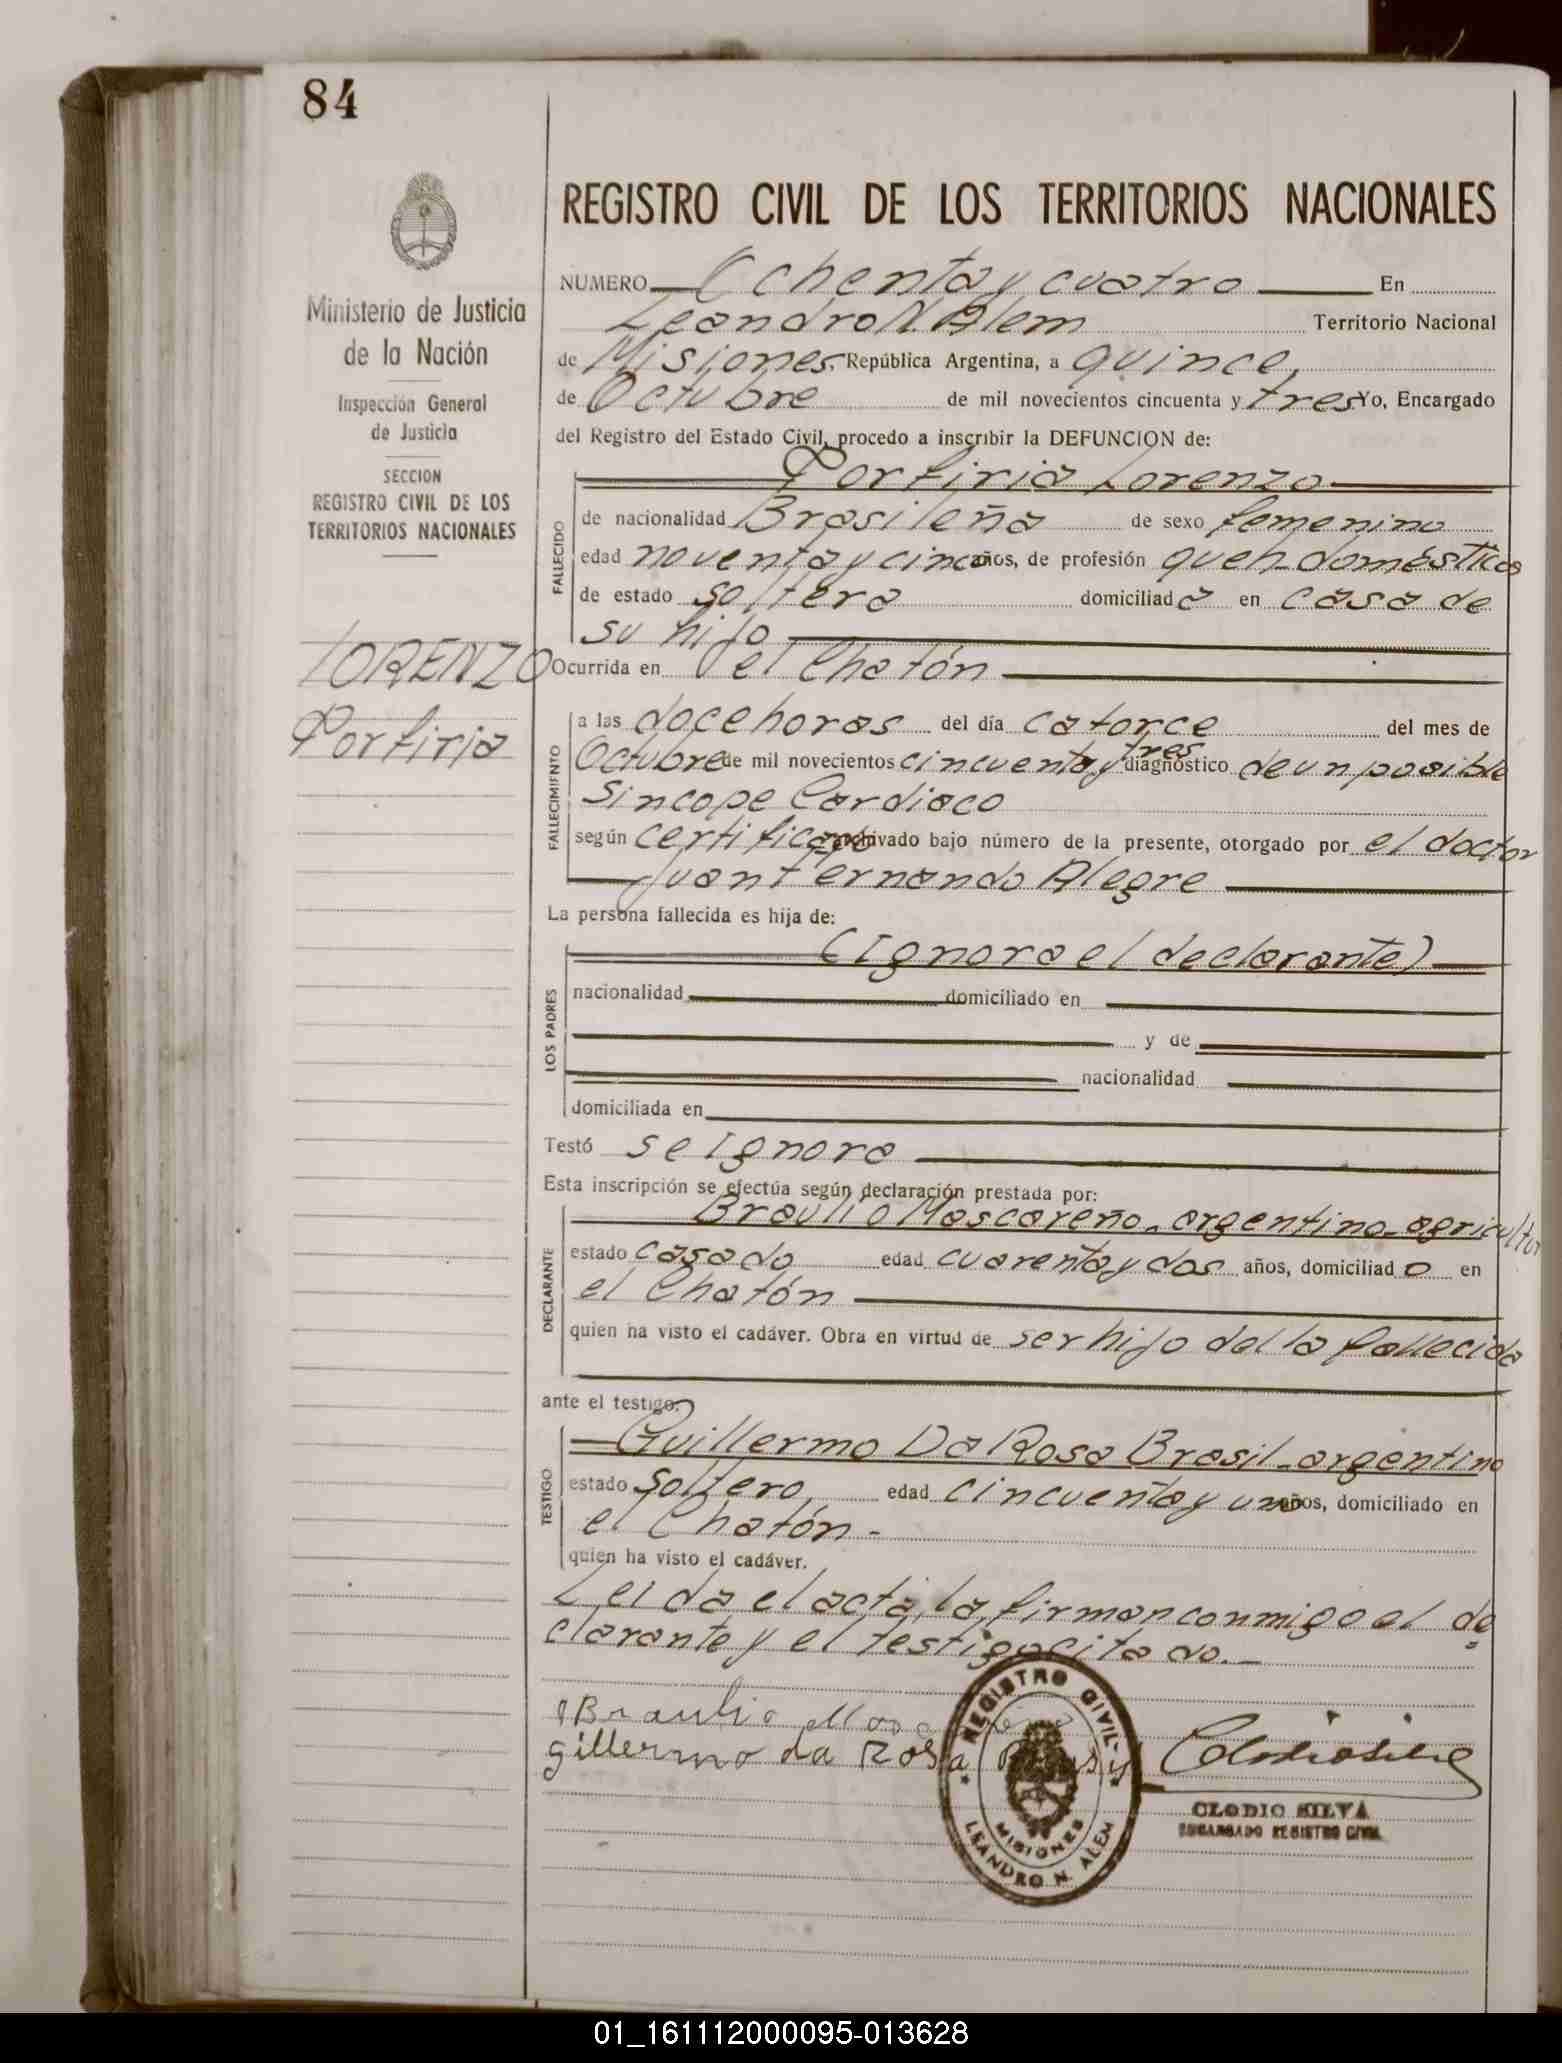 84
REGISTRO CIVIL DE LOS TERRITORIOS NACIONALES
Ministerio de Justicia
de la Nación
Inspección General
de Justicia
SECCION
REGISTRO CIVIL DE LOS
TERRITORIOS NACIONALES
LORENZO
Porfiria
NUMERO Ochenta y cuatro En
Leandro N. Alem Territorio Nacional
de Misiones, República Argentina, a quince
de Octubre de mil novecientos cincuenta y tres Yo, Encargado
del Registro del Estado Civil, procedo a inscribir la DEFUNCION de:
FALLECIDO
Porfiria Lorenzo
de nacionalidad Brasileña de sexo femenino
edad noventa y cinco años, de profesión queh. domésticos
de estado soltera domiciliad a en casa de
su hijo
Ocurrida en el Chatón
FALLECIMIENTO
a las doce horas del día catorce del mes de
Octubre de mil novecientos cincuenta y tres diagnóstico de un posible
Sincope Cardiaco
según certificado archivado bajo número de la presente, otorgado por el doctor
Juan Fernando Alegre
La persona fallecida es hija de:
LOS PADRES
(Ignora el declarante)
nacionalidad domiciliado en
y de
nacionalidad
domiciliada en
Testó se Ignora
Esta inscripción se efectúa según declaración prestada por:
DECLARANTE
Braulio Mascareño. argentino. agricultor
estado casado edad cuarenta y dos años, domiciliad o en
el Chatón
quien ha visto el cadáver. Obra en virtud de ser hijo del la fallecida
ante el testigo:
TESTIGO
Guillermo Da Rosa Brasil. argentino
estado soltero, edad cincuenta y uno años, domiciliado en
el Chatón.
quien ha visto el cadáver.
Leida el acta, la firman conmigo el de
clarante y el testigo citado.
Braulio
gillermo da Rosa
REGISTRO CIVIL
MISIONES
LEANDRO N. ALEM
CLODIO SILVA
ENCARGADO REGISTRO CIVIL
01_161112000095-013628